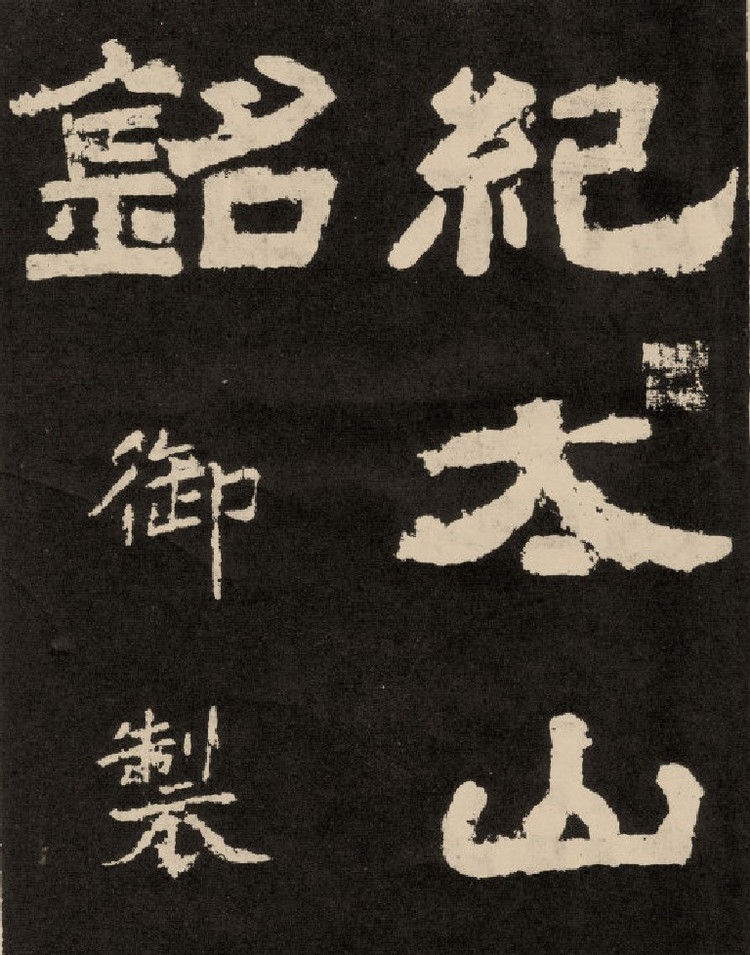 紀太山
銘
御製